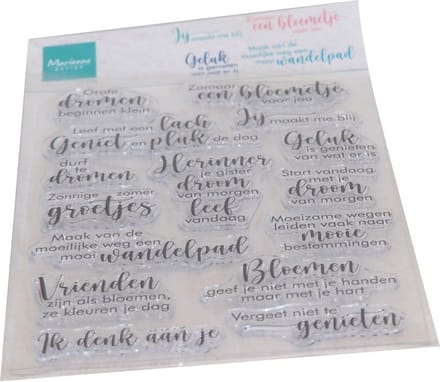 Marianne
DESIGN
Jy
maakt me blij
Zomaar
een bloemetje
voor jou
Geluk
is genieten
van wat er is
Maak van de
moeilijke weg een
mooi wandelpad
Grote
dromen
beginnen klein
Zomaar
een bloemetje
voor jou
Leef met een lach
Geniet en pluk de dag
Jy maakt me blij
durf
te
dromen
Herinner
je gister
droom
van morgen
leef
vandaag
Geluk
is genieten
van wat er is
Zonnige zomer
groetjes
Start vandaag
met je
droom
van morgen
Maak van de
moeilijke weg een
mooi wandelpad
Moeizame wegen
leiden vaak naar
mooie
bestemmingen
Vrienden
zijn als bloemen,
ze kleuren je dag
Bloemen
geef je niet met je handen
maar met je hart
Ik denk áán je
Vergeet niet te
genieten